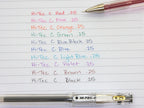 Hi-Tec C Red .25
Hi-Tec C Pink .25
Hi-Tec C Orange .25
Hi-Tec C Green .25
Hi-Tec C Blue Black .25
Hi-Tec C Blue .25
Hi-Tec C Light Blue .25
Hi-Tec C Violet .25
Hi-Tec C Brown .25
Hi-Tec C Black .25
HI-TEC-C